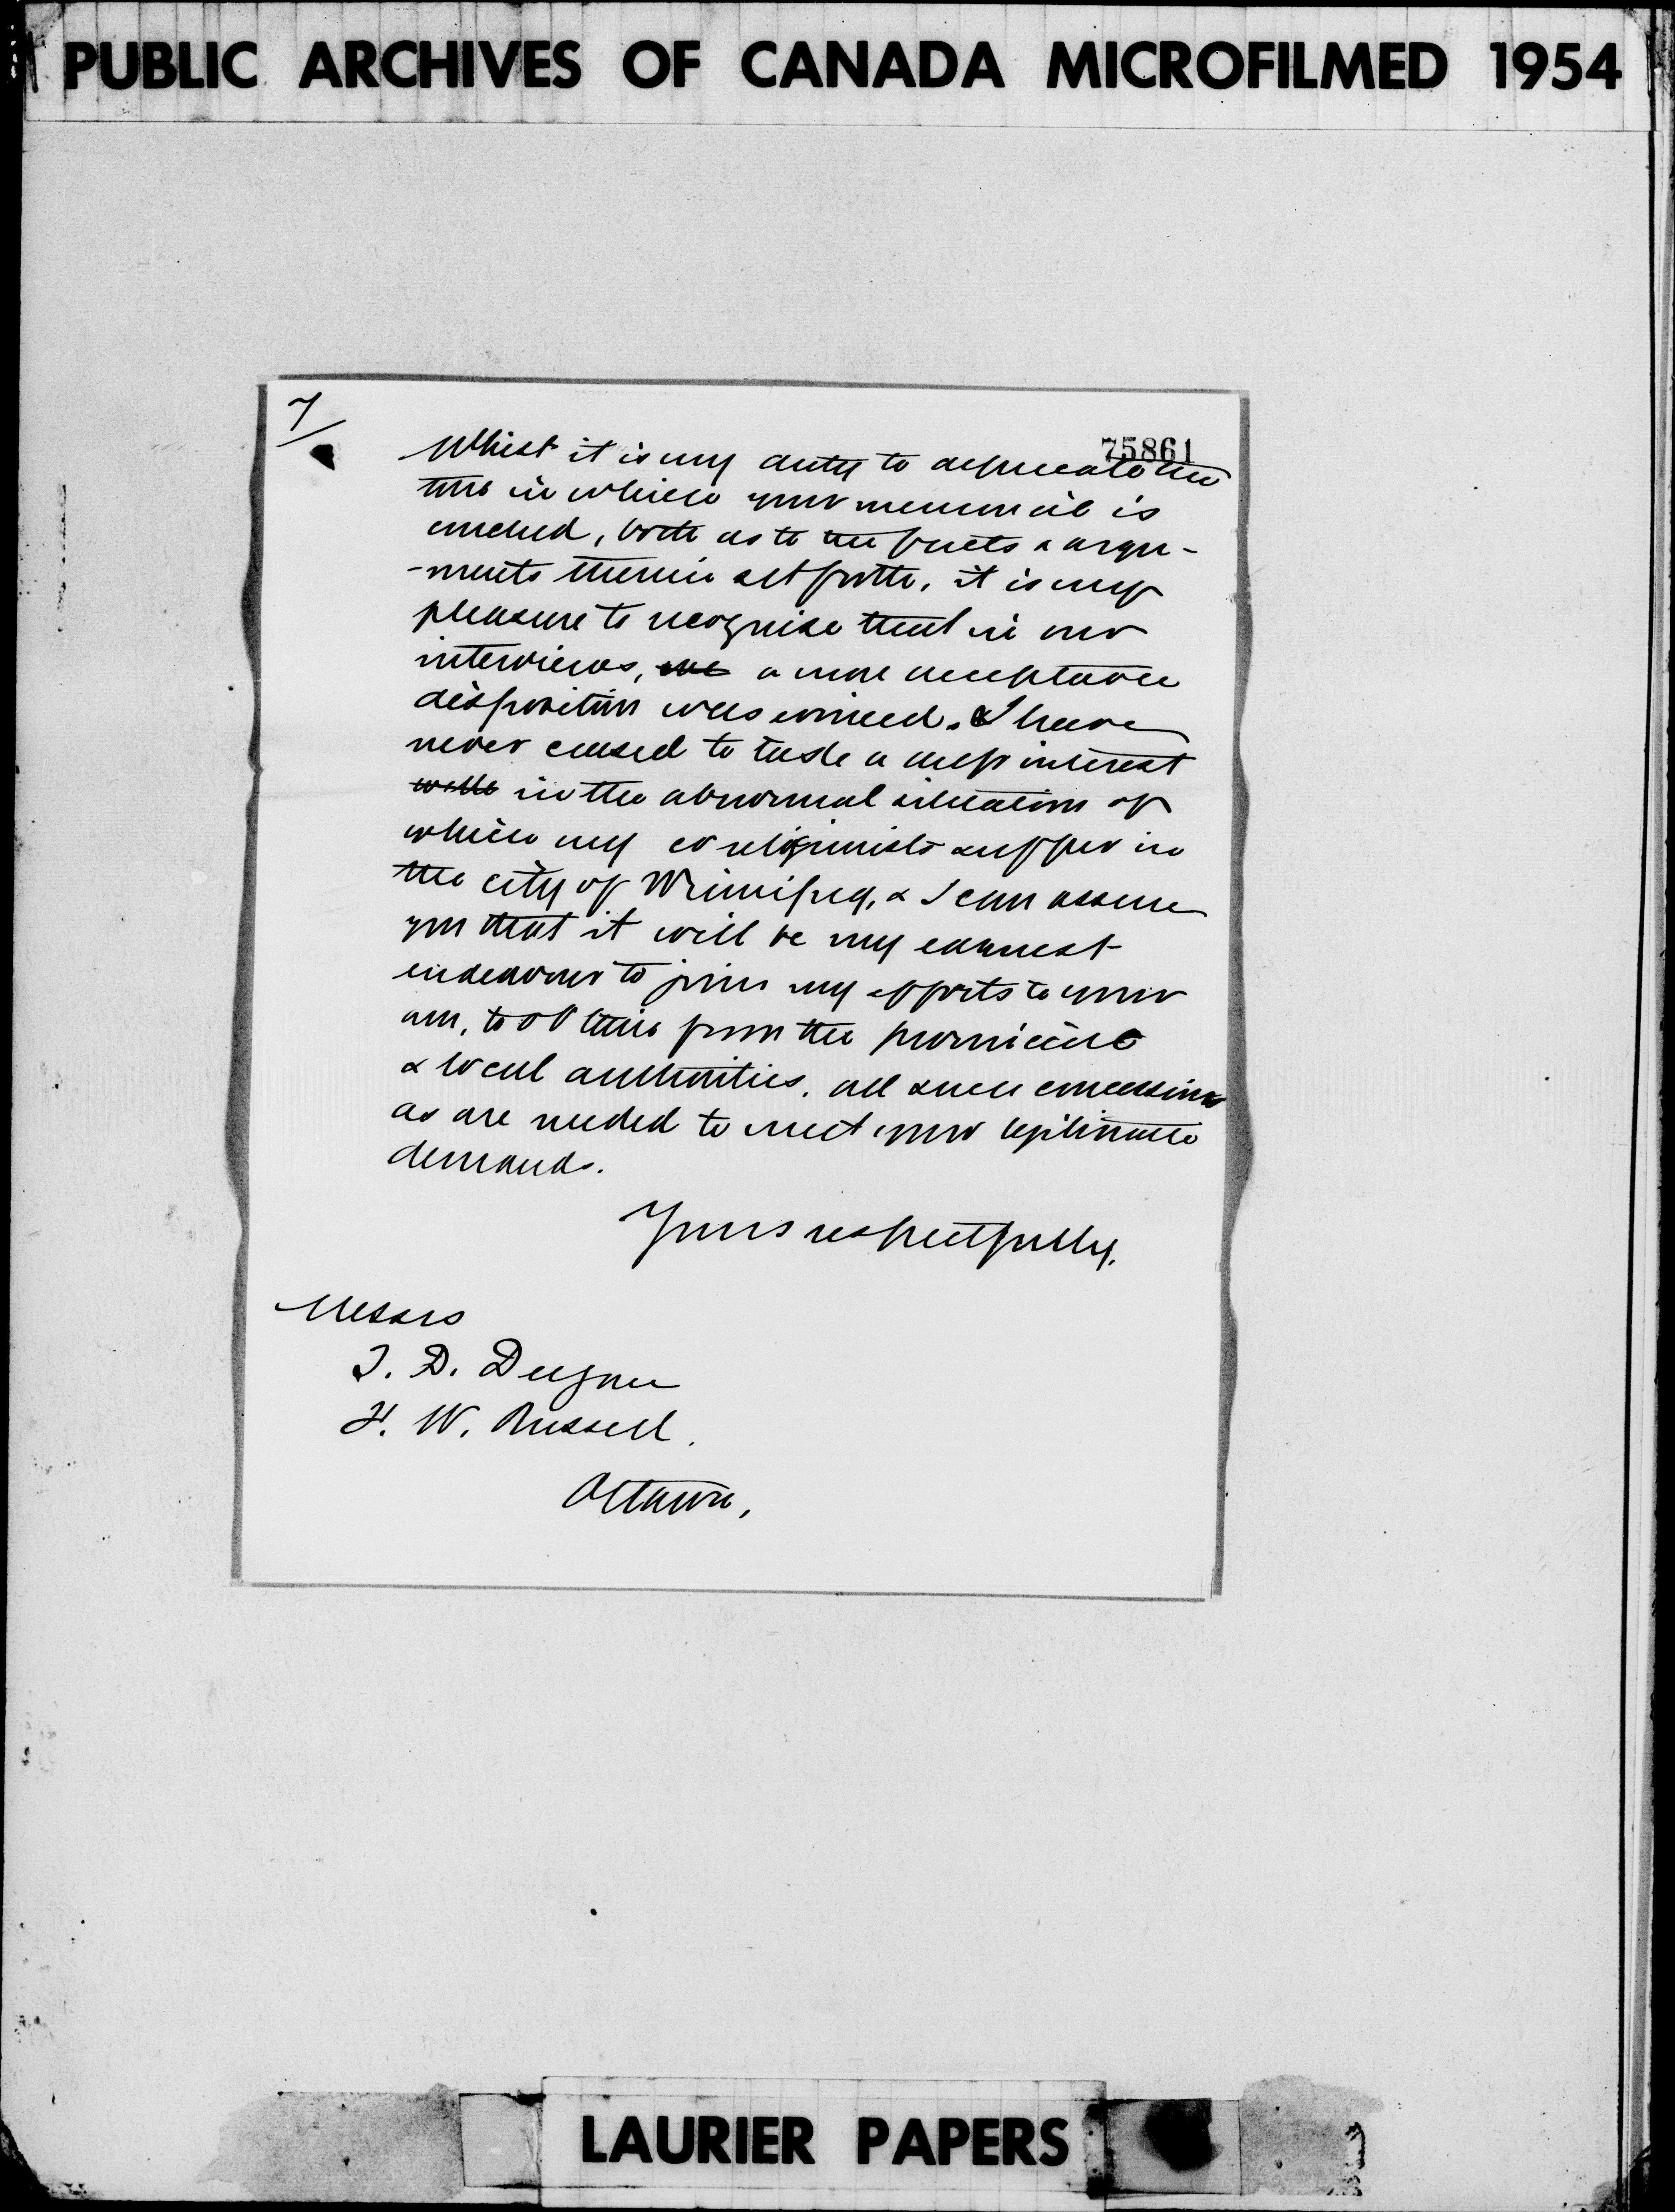 PUBLIC ARCHIVES OF CANADA MICROFILMED 1954
7/
75861
Whilst it is my duty to deprecate the
tone in which your memorial is
couched, both as to the facts & argu-
-ments therein set forth, it is my
pleasure to recognise that in our
interviews, a more acceptable
disposition was evinced. & I have
never ceased to take a deep interest
in the abnormal situation of
which my coreligionists suffer in
the city of Winnipeg, & I can assure
you that it will be my earnest
endeavour to join my efforts to your
own, to obtain from the provincial
& local authorities, all such concessions
as are needed to meet your legitimate
demands.
Yours respectfully,
Messrs
T. D. Deegan
F. W. Russell.
Ottawa,
LAURIER PAPERS